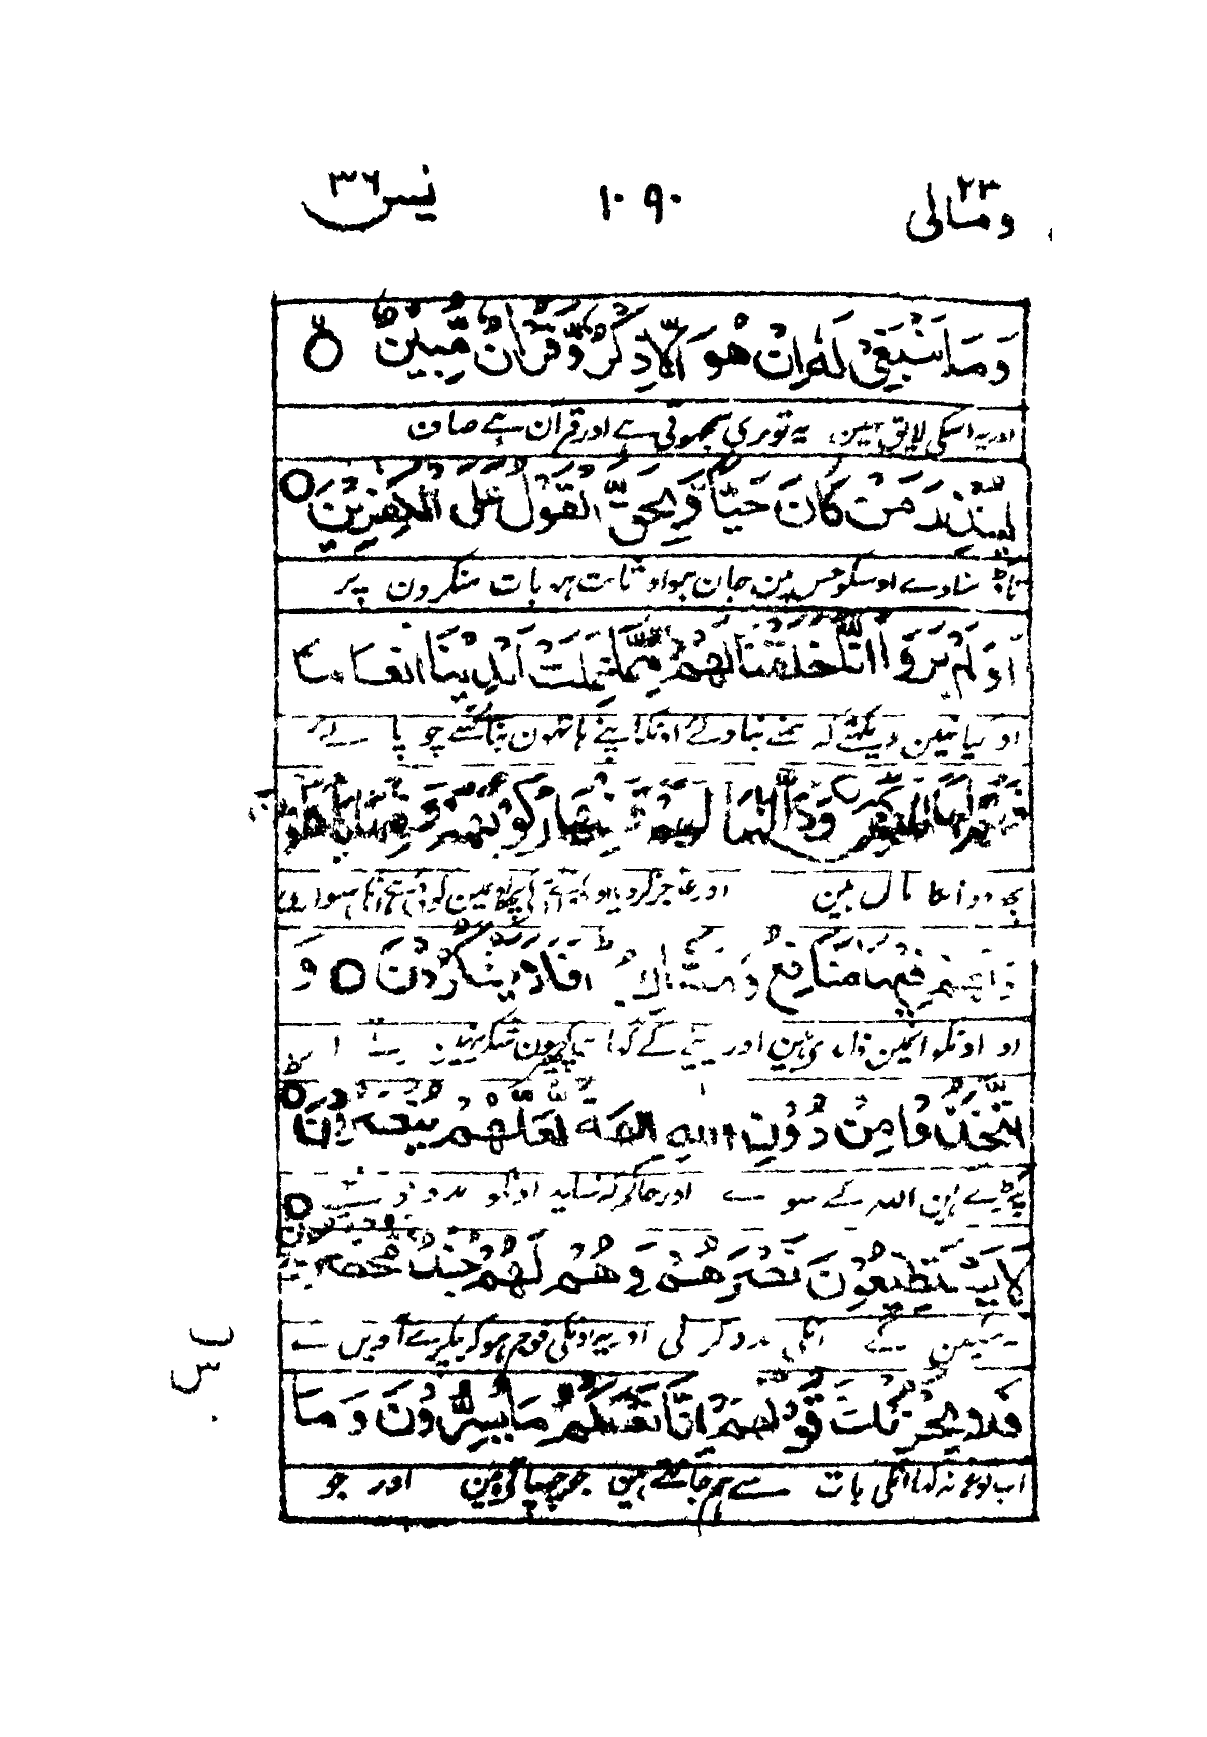 ومالی ۲۳ ۱۰۹۰ یٰس ۳۶
وَمَا يَنْبَغِيْ لَهٗ اِنْ هُوَ اِلَّا ذِكْرٌ وَّقُرْاٰنٌ مُّبِيْنٌ ۝
اور یہ اسکی لایق نہین یہ تو نری سمجھوتی ہے اور قرآن ہے صاف
لِّيُنْذِرَ مَنْ كَانَ حَيًّا وَّيَحِقَّ الْقَوْلُ عَلَى الْكٰفِرِيْنَ ۝
سناوے اوسکو جس مین جان ہو اور ثابت ہو بات منکرون پر
اَوَلَمْ يَرَوْا اَنَّا خَلَقْنَا لَهُمْ مِّمَّا عَمِلَتْ اَيْدِيْنَا اَنْعَامًا
اور کیا نہین دیکھتے کہ ہمنے بنا دیے اونکو اپنے ہاتھون بنائے چوپائے
فَهُمْ لَهَا مٰلِكُوْنَ وَذَلَّلْنٰهَا لَهُمْ فَمِنْهَا رَكُوْبُهُمْ وَمِنْهَا يَاْكُلُوْنَ
مال ہین اور عاجز کر دیا سواری
وَلَهُمْ فِيْهَا مَنَافِعُ وَمَشَارِبُ اَفَلَا يَشْكُرُوْنَ ۝ وَ
اور اونکو انمین فایدے ہین اور پینے کے گھاٹ پھر کیون شکر نہین
اتَّخَذُوْا مِنْ دُوْنِ اللهِ اٰلِهَةً لَّعَلَّهُمْ يُنْصَرُوْنَ ۝
پکڑے ہین اللہ کے سوے اور حاکم کہ شاید اونکو مدد
لَا يَسْتَطِيْعُوْنَ نَصْرَهُمْ وَهُمْ لَهُمْ جُنْدٌ مُّحْضَرُوْنَ ۝
سکینگے انکی مدد کرنی اور یہ اونکی فوج ہو کر پکڑے آوین
فَلَا يَحْزُنْكَ قَوْلُهُمْ اِنَّا نَعْلَمُ مَا يُسِرُّوْنَ وَمَا
اب تو غم نہ کھا انکی بات سے ہم جانتے ہین جو چھپاتے ہین اور جو